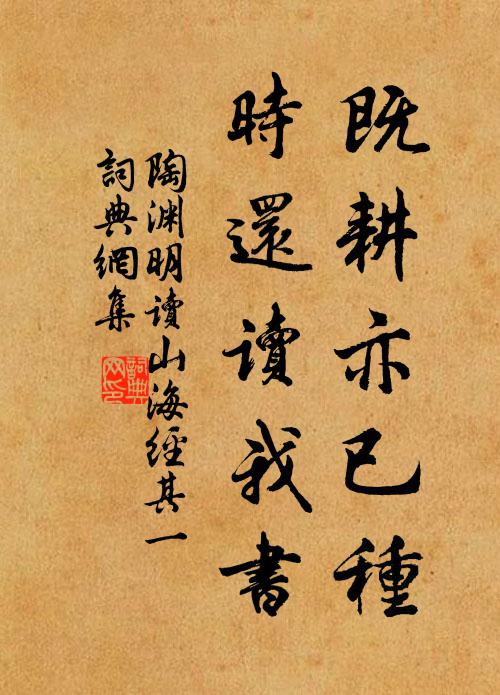 既耕亦已種
時還讀我書
陶渊明讀山海經其一
詞典網集
詞典
网印